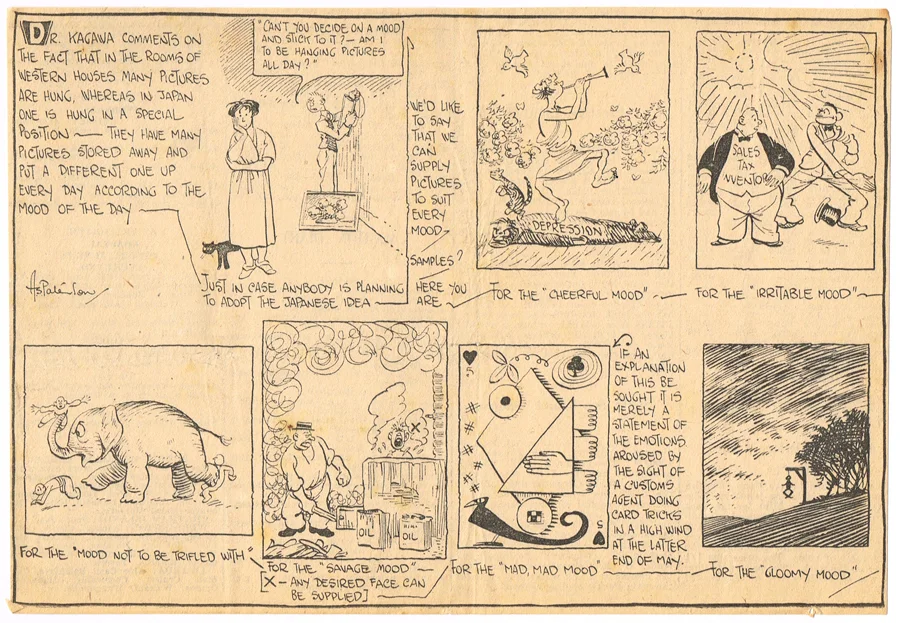 DR. KAGAWA COMMENTS ON
THE FACT THAT IN THE ROOMS OF
WESTERN HOUSES MANY PICTURES
ARE HUNG, WHEREAS IN JAPAN
ONE IS HUNG IN A SPECIAL
POSITION — THEY HAVE MANY
PICTURES STORED AWAY AND
PUT A DIFFERENT ONE UP
EVERY DAY ACCORDING TO THE
MOOD OF THE DAY —
"CAN'T YOU DECIDE ON A MOOD
AND STICK TO IT? — AM I
TO BE HANGING PICTURES
ALL DAY?"
JUST IN CASE ANYBODY IS PLANNING
TO ADOPT THE JAPANESE IDEA —
WE'D LIKE
TO SAY
THAT WE
CAN
SUPPLY
PICTURES
TO SUIT
EVERY
MOOD
SAMPLES?
HERE YOU
ARE
DEPRESSION
FOR THE "CHEERFUL MOOD" —
SALES
TAX
FOR THE "IRRITABLE MOOD" —
FOR THE "MOOD NOT TO BE TRIFLED WITH"
X
OIL
OIL
FOR THE "SAVAGE MOOD" —
[X — ANY DESIRED FACE CAN
BE SUPPLIED]
5
5
FOR THE "MAD, MAD MOOD"
IF AN
EXPLANATION
OF THIS BE
SOUGHT IT IS
MERELY A
STATEMENT OF
THE EMOTIONS
AROUSED BY
THE SIGHT OF
A CUSTOMS
AGENT DOING
CARD TRICKS
IN A HIGH WIND
AT THE LATTER
END OF MAY.
FOR THE "GLOOMY MOOD"